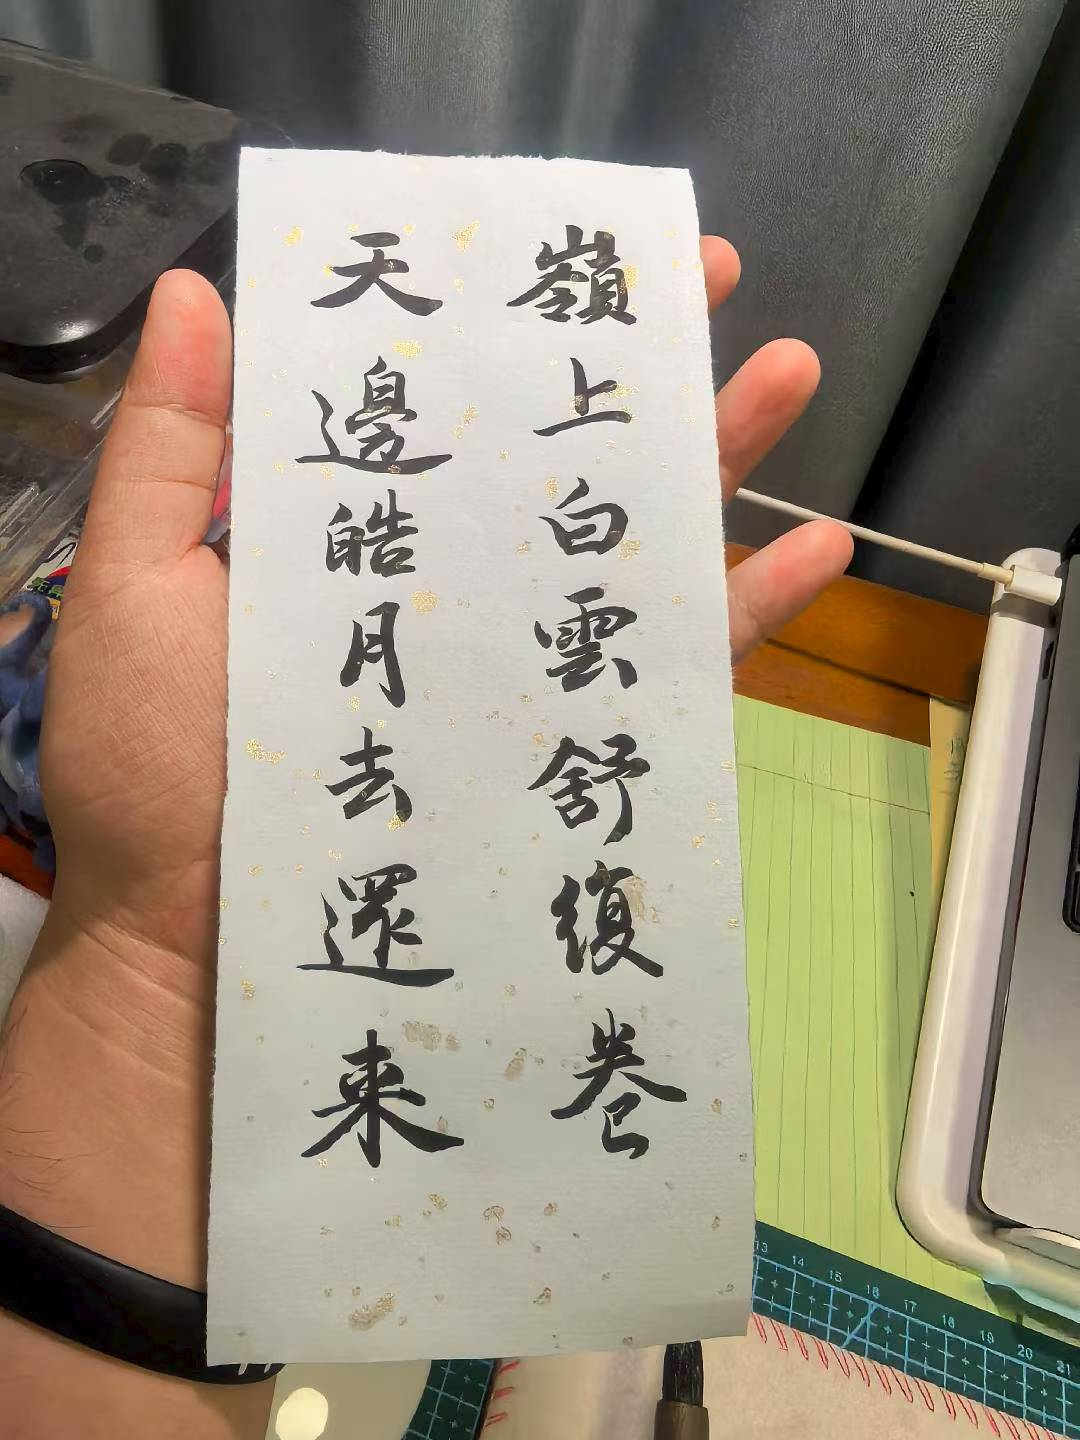 嶺上白雲舒復卷
天邊皓月去還来
13 14 15 16 17 18 19 20 21